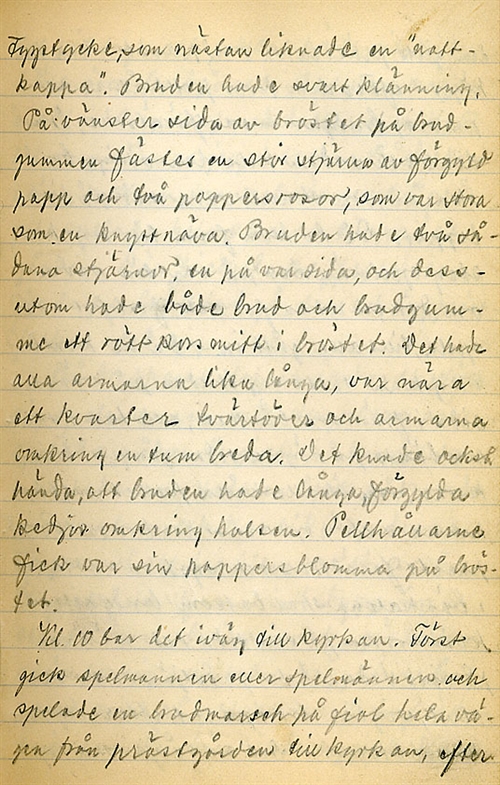 Tygstycke, som nästan liknade en "natt-
kappa". Bruden hade svart klänning.
På vänster sida av bröstet på brud-
gummen fästes en stor stjärna av förgylld
papp och två pappersrosor, som var stora
som en knytnäva. Bruden hade två så-
dana stjärnor, en på var sida, och dess-
utom hade både brud och brudgum-
me ett rött kors mitt i bröstet. Det hade
alla armarna lika långa, var nära
ett kvarter tvärtöver och armarna
omkring en tum breda. Det kunde också
hända, att bruden hade långa, förgylda
kedjor omkring halsen. Pellhållarne
fick var sin pappersblomma på brös-
tet.
Kl. 10 bar det iväg till kyrkan. Först
gick spelmannen eller spelmännen och
spelade en brudmarsch på fiol hela vä-
gen från prästgården till kyrkan, efter